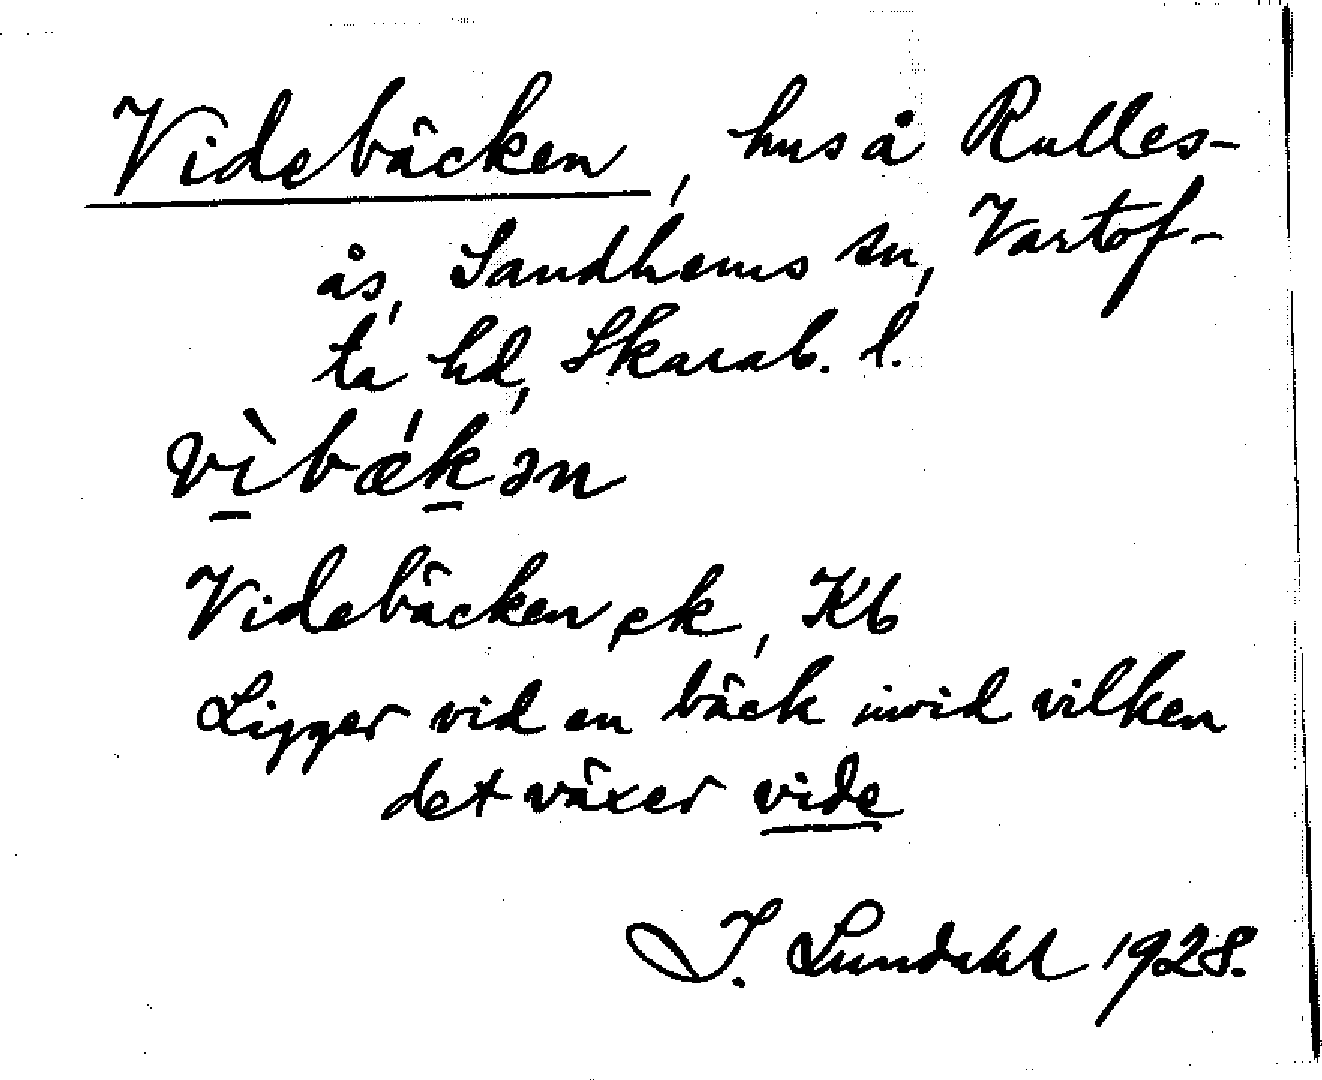 Videbäcken, hus å Rulles-
ås, Sandhems sn, Vartof-
ta hd, Skarab. l.
vìbǽkən
Videbäcken, ek, Kb
Ligger vid en bäck invid vilken
det växer vide
I. Lundahl 1928.